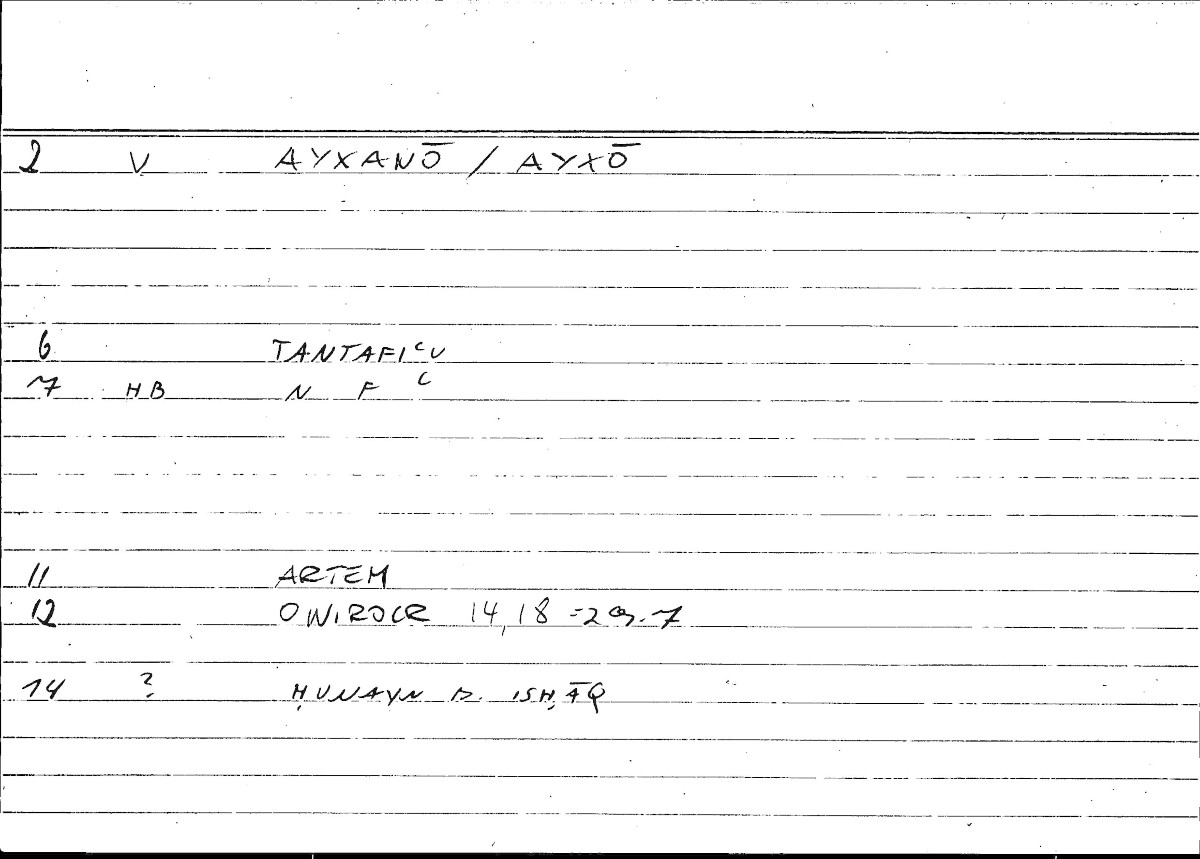 2 V AYXANŌ / AYXŌ
6 TANTAFIʿU
7 HB N F ʿ
11 ARTEM
12 ONIROCR 14,18 = 29.7
14 ? ḤUNAYN B. ISḤĀQ